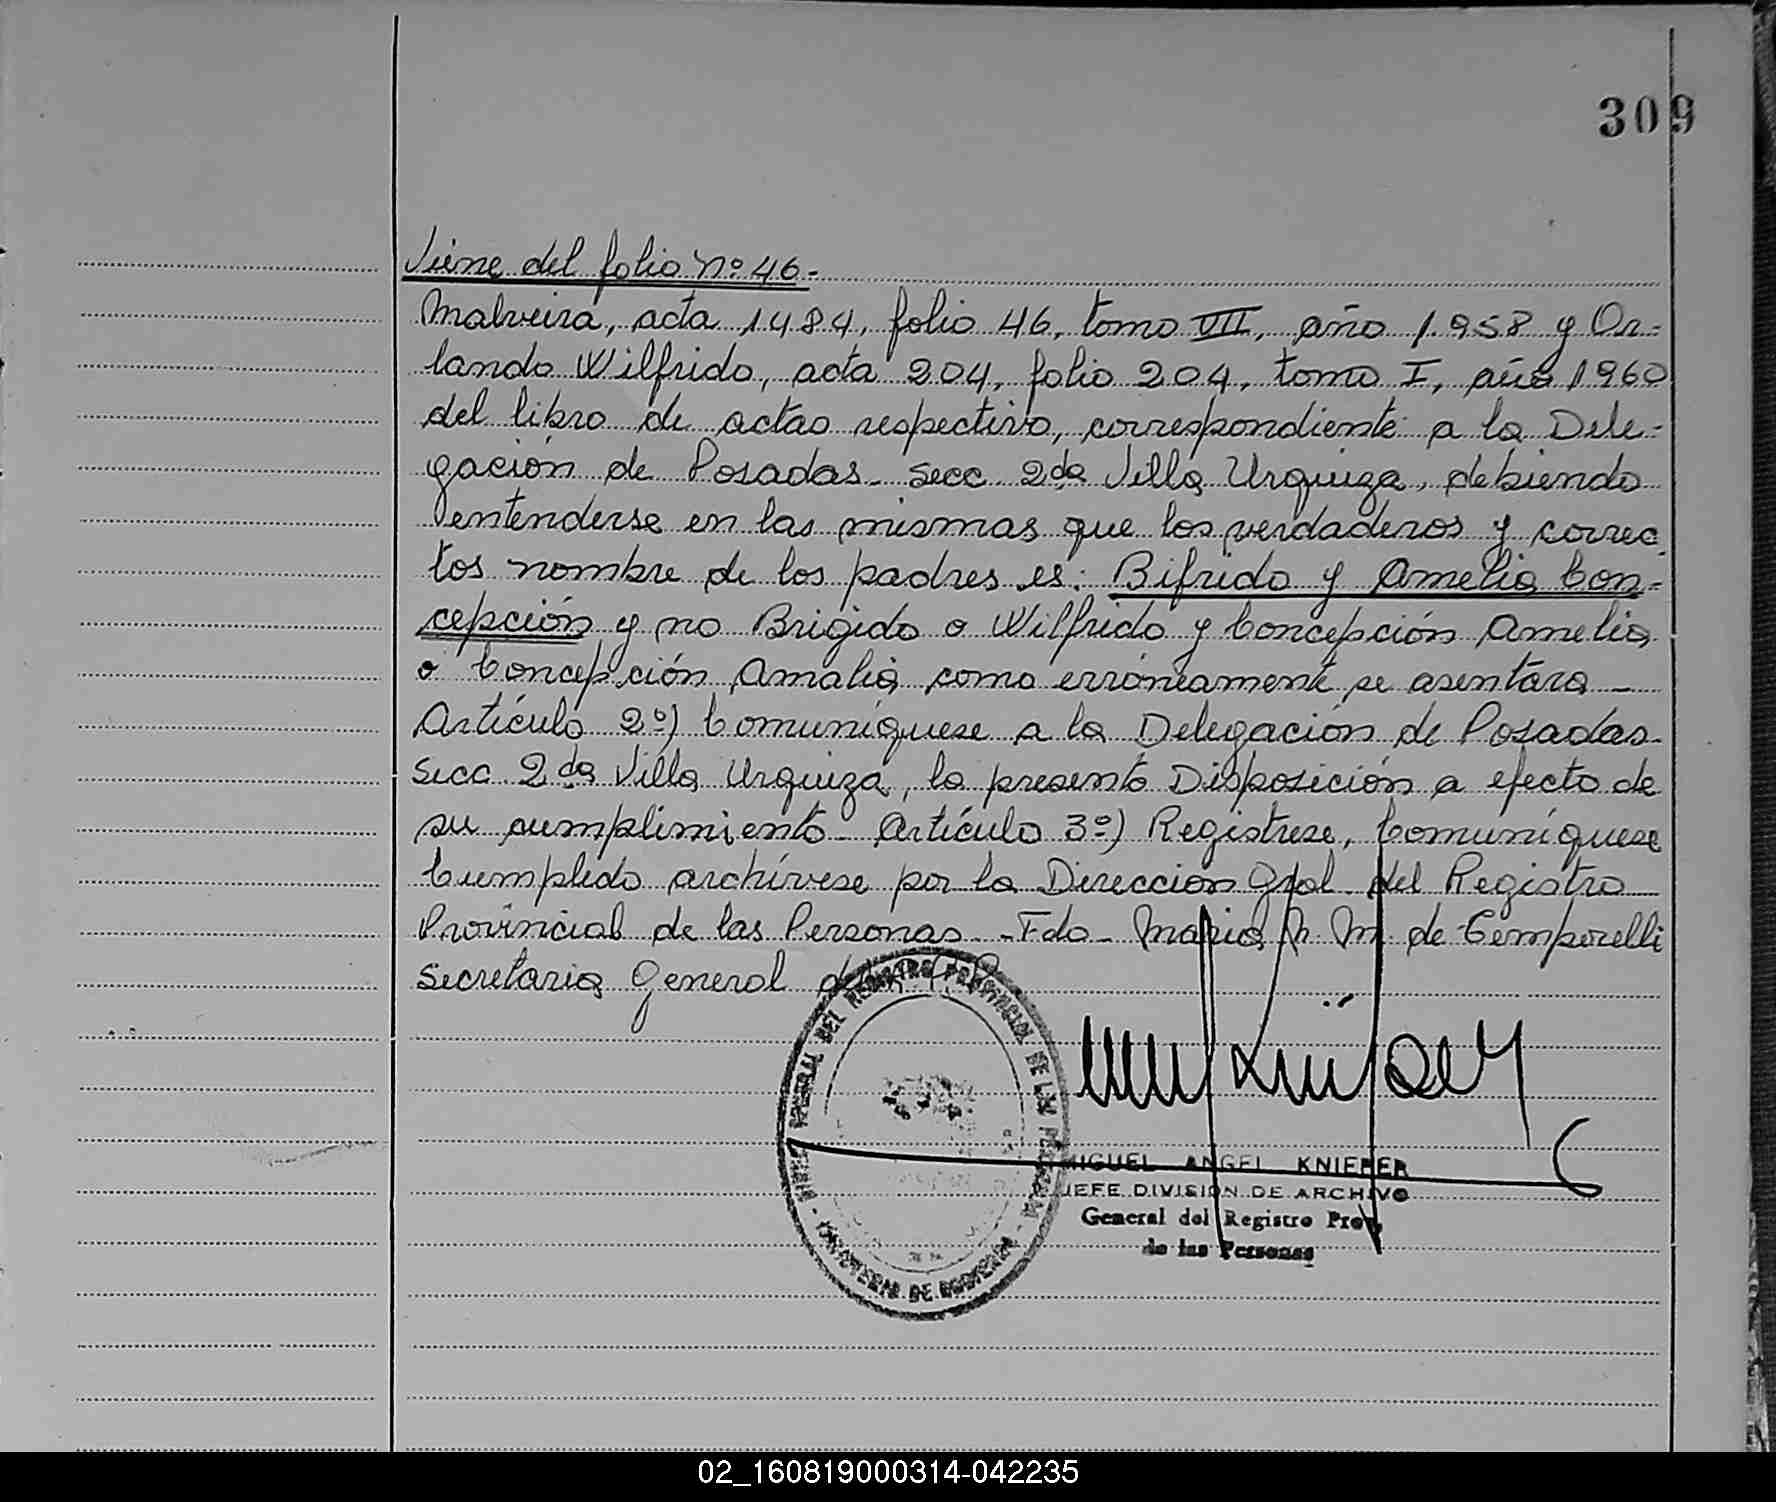 309
Viene del folio Nº 46-
Malveira, acta 1484, folio 46, tomo VII, año 1.958 y Or=
lando Wilfrido, acta 204, folio 204, tomo I, año 1960
del libro de actas respectivo, correspondiente a la Dele-
gación de Posadas - Secc 2da Villa Urquiza, debiendo
entenderse en las mismas que los verdaderos y correc
tos nombre de los padres es: Bifrido y Amelia Con=
cepción y no Brigido o Wilfrido y Concepción Amelia
o Concepción Amalia como erróneamente se asentara -
Artículo 2º) Comuníquese a la Delegación de Posadas-
Secc 2da Villa Urquiza, la presente Disposición a efecto de
su cumplimiento - Artículo 3º) Registrese, Comuníquese
Cumplido archívese por la Direccion Gral del Registro
Provincial de las Personas - Fdo - Maria N. M. de Temporelli
Secretaria General
GENERAL DEL REGISTRO PROVINCIAL DE LAS PERSONAS
MINISTERIO DE GOBIERNO
MIGUEL ANGEL KNIEPER
JEFE DIVISION DE ARCHIVO
General del Registro Prov.
de las Personas
02_160819000314-042235